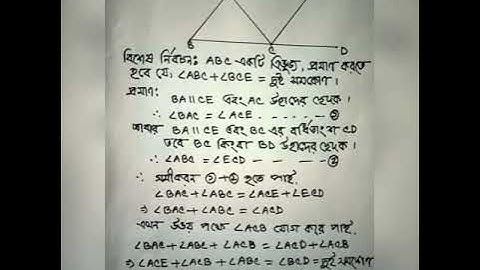 B C D
বিশেষ নির্বচন: ABC একটি ত্রিভুজ, প্রমাণ করতে
হবে যে, ∠ABC+∠BCE = দুই সমকোণ।
প্রমাণ:
BA||CE এবং AC তাদের ছেদক।
∴ ∠BAC = ∠ACE - - - - - ①
আবার BA||CE এবং BC এর বর্ধিতাংশ CD
তবে BC কিংবা BD তাদের ছেদক।
∴ ∠ABC = ∠ECD - - - - ②
∴ সমীকরণ ①+② হতে পাই,
∠BAC+∠ABC = ∠ACE+∠ECD
⇒ ∠BAC+∠ABC = ∠ACD
এখন উভয় পক্ষে ∠ACB যোগ করে পাই,
∠BAC+∠ABC+∠ACB = ∠ACD+∠ACB
⇒ ∠ACE+∠ACB+∠ABC = ∠BCD = দুই সমকোণ